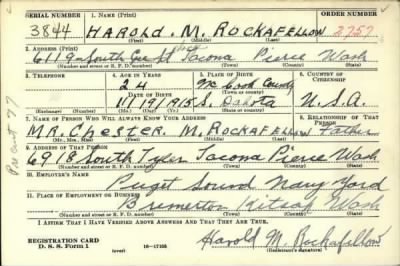 SERIAL NUMBER 1. NAME (Print) ORDER NUMBER
3844 HAROLD. M. ROCKAFELLOW 2757
(First) (Middle) (Last)
2. ADDRESS (Print)
6119 South St Tacoma Pierce Wash
(Number and street or R. F. D. number) (Town) (County) (State)
3. TELEPHONE 4. AGE IN YEARS 5. PLACE OF BIRTH 6. COUNTRY OF CITIZENSHIP
24 County
DATE OF BIRTH (Town or county)
11/19/1915 S. Dakota U.S.A.
(Exchange) (Number) (Mo.) (Day) (Yr.) (State or country)
7. NAME OF PERSON WHO WILL ALWAYS KNOW YOUR ADDRESS 8. RELATIONSHIP OF THAT PERSON
MR. CHESTER. M. ROCKAFELLOW Father
(Mr., Mrs., Miss) (First) (Middle) (Last)
9. ADDRESS OF THAT PERSON
6918 South Tyler Tacoma Pierce Wash
(Number and street or R. F. D. number) (Town) (County) (State)
10. EMPLOYER'S NAME
Puget Sound Navy Yard
11. PLACE OF EMPLOYMENT OR BUSINESS
Bremerton Kitsap Wash
(Number and street or R. F. D. number) (Town) (County) (State)
I AFFIRM THAT I HAVE VERIFIED ABOVE ANSWERS AND THAT THEY ARE TRUE.
REGISTRATION CARD
D. S. S. Form 1 (over) 16—17105
Harold M. Rockafellow
(Registrant's signature)